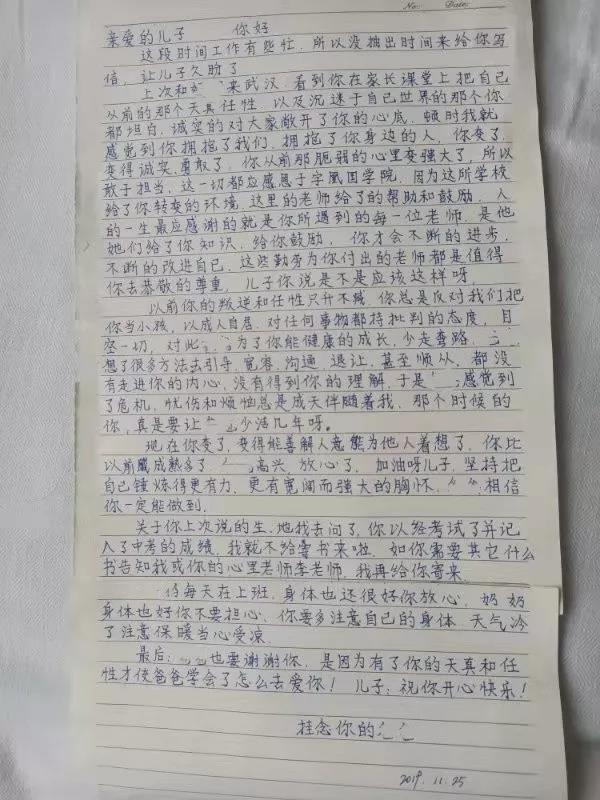 No:	Date:
亲爱的儿子	你好
这段时间工作有些忙，所以没抽出时间来给你写
信，让儿子久盼了
上次和 来武汉，看到你在家长课堂上把自己
从前的那个天真任性，以及沉迷于自己世界的那个你
都坦白，诚实的对大家敞开了你的心底，顿时我就
感觉到你拥抱了我们，拥抱了你身边的人，你变了，
变得诚实，勇敢了，你从前那脆弱的心里变强大了，所以
敢于担当，这一切都应感恩于 国学院，因为这所学校
给了你转变的环境，这里的老师给了的帮助和鼓励，人
的一生最应感谢的就是你所遇到的每一位老师，是他
她们给了你知识，给你鼓励，你才会不断的进步，
不断的改进自己，这些勤劳为你付出的老师都是值得
你去恭敬的尊重，儿子你说是不是应该这样呀，
以前你的叛逆和任性只升不减，你总是反对我们把
你当小孩，以成人自居，对任何事物都持批判的态度，目
空一切，对此 为了你能健康的成长，少走弯路，
想了很多方法去引导，宽容，沟通，退让，甚至顺从，都没
有走进你的内心，没有得到你的理解，于是 感觉到
了危机，忧伤和烦恼总是成天伴随着我，那个时候的
你，真是要让 少活几年呀。
现在你变了，变得能善解人意能为他人着想了，你比
以前 成熟多了， 高兴，放心了，加油呀儿子，坚持把
自己锤炼得更有力，更有宽阔而强大的胸怀， 相信
你一定能做到，
关于你上次说的生、地我去问了，你以经考试了并记
入了中考的成绩，我就不给 书来啦，如你需要其它什么
书告知我或你的心里老师李老师，我再给你寄来
每天在上班，身体也还很好你放心，奶奶
身体也好你不要担心，你要多注意自己的身体，天气冷
了注意保暖当心受凉，
最后： 也要谢谢你，是因为有了你的天真和任
性才使爸爸学会了怎么去爱你！儿子：祝你开心快乐！
挂念你的
2019. 11. 25